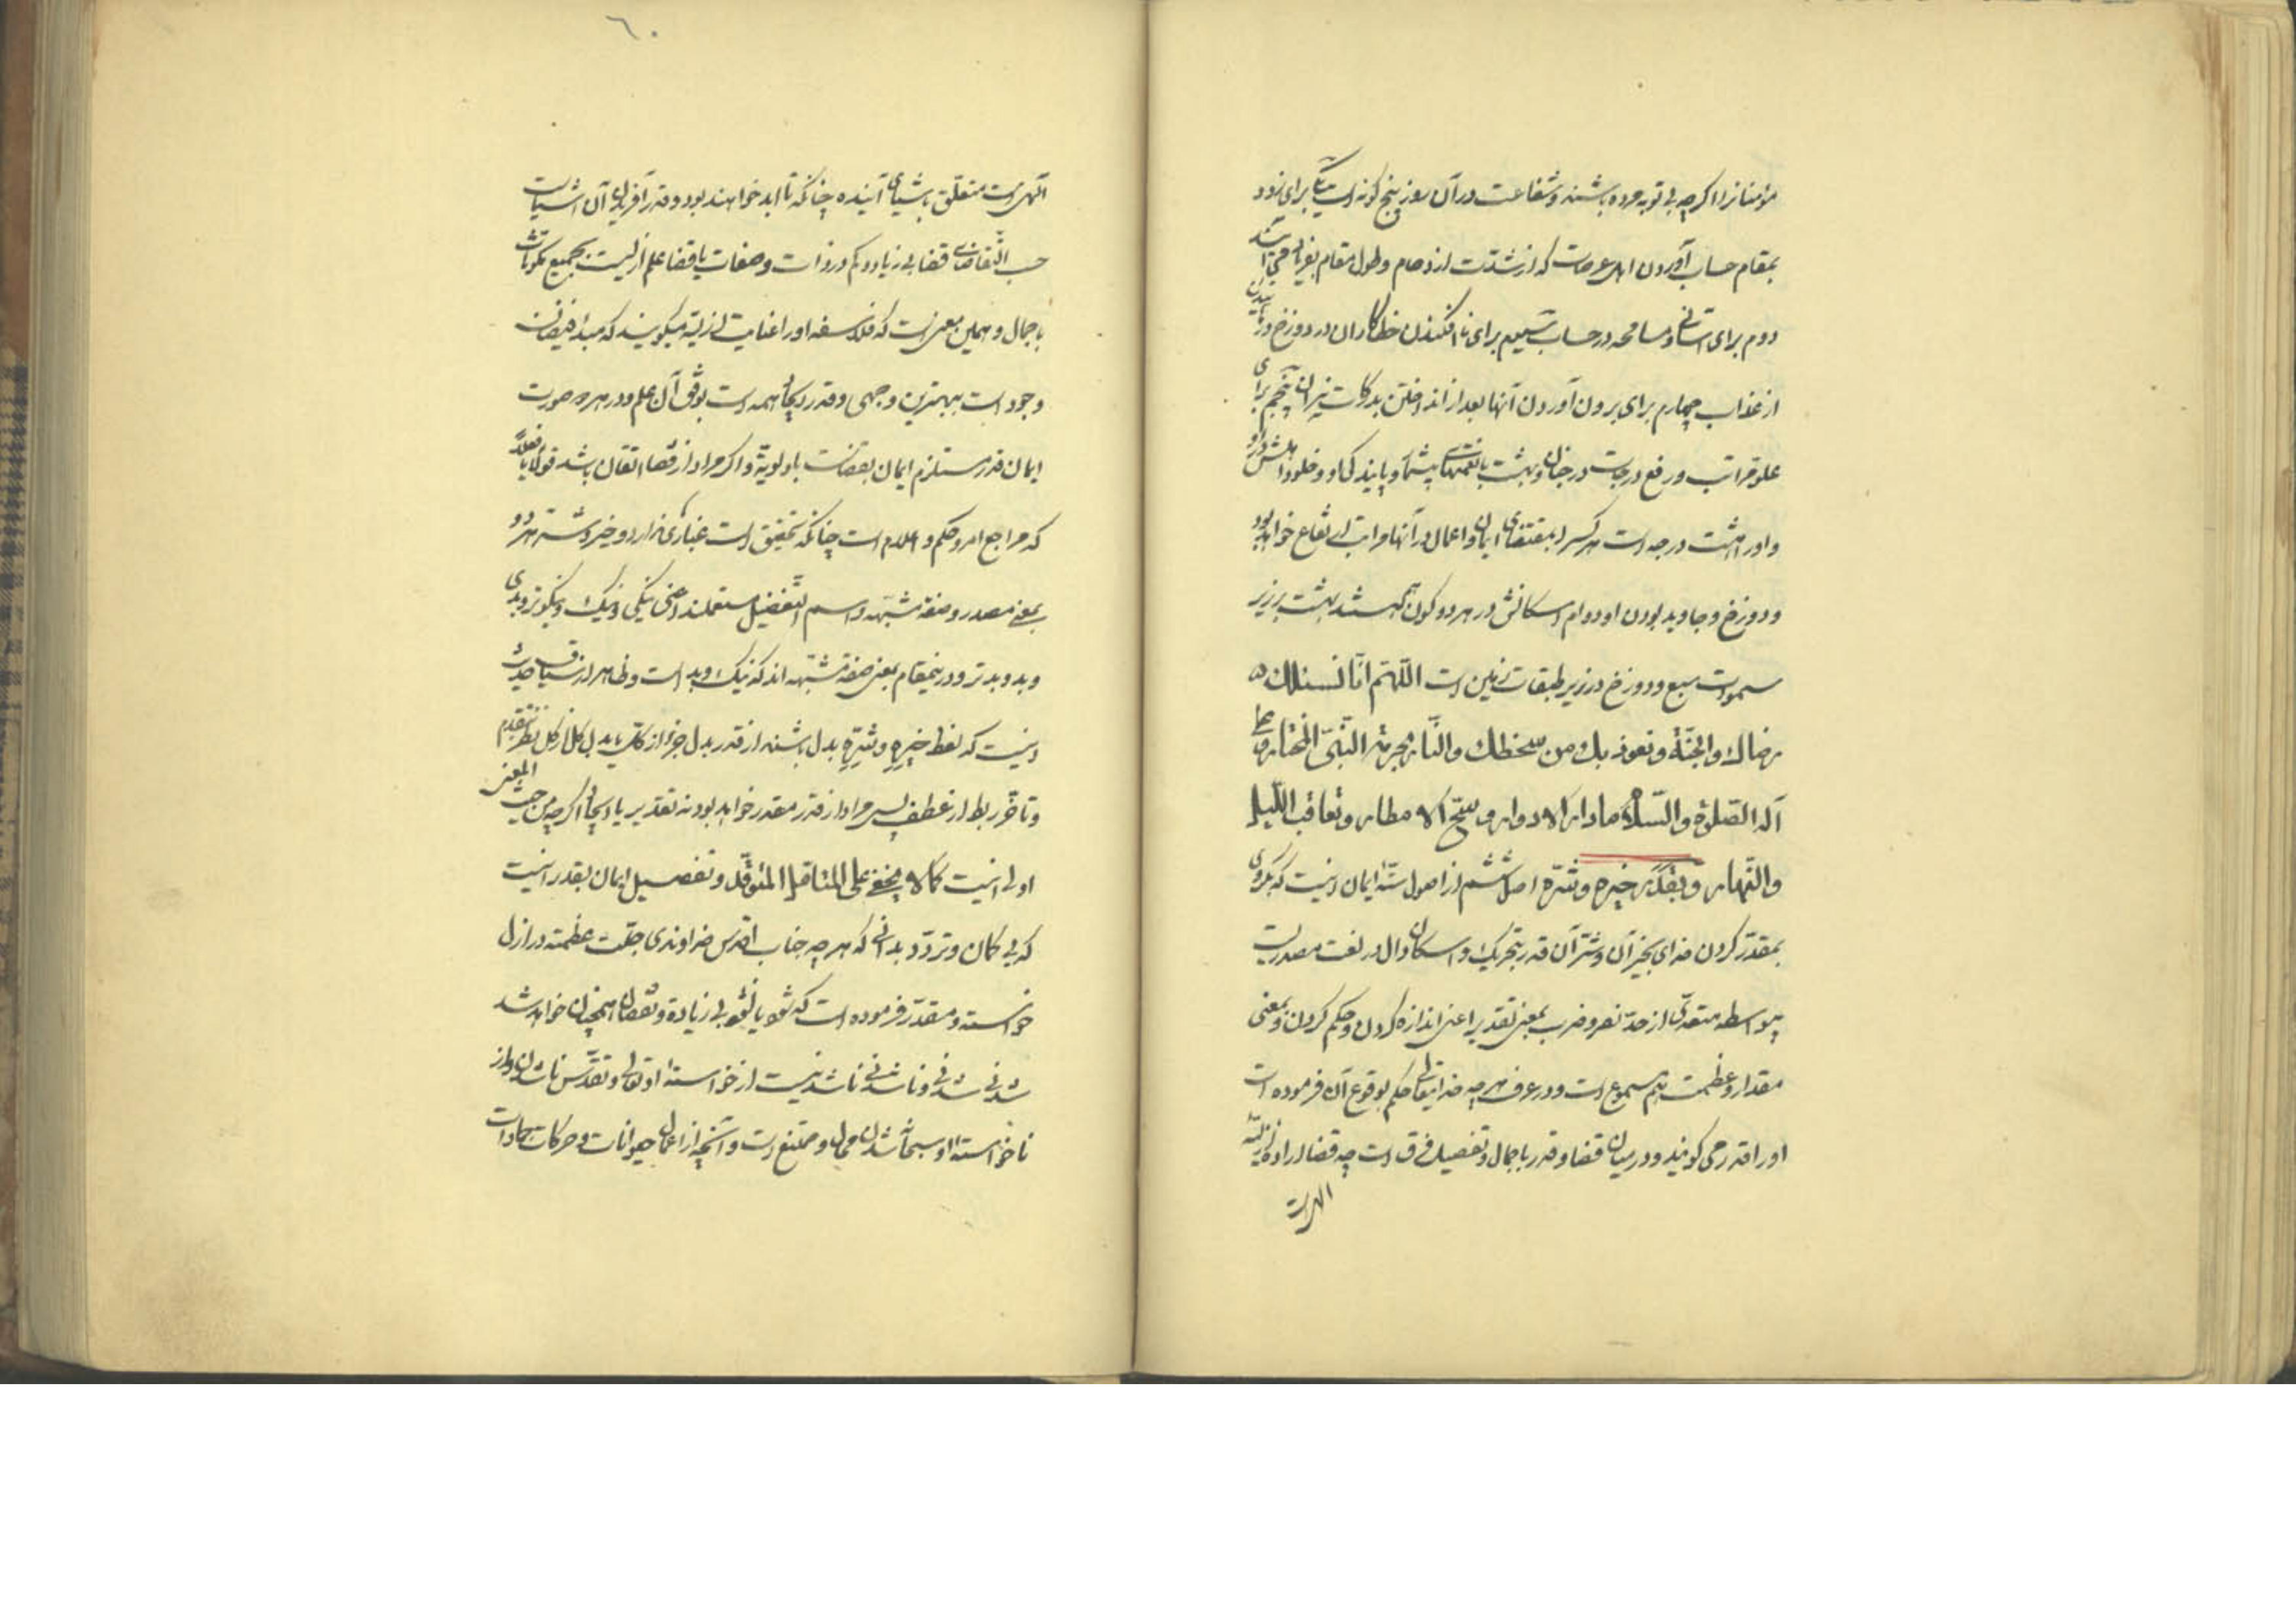 مؤمنانرا اگرچه بی توبه مرده باشند و شفاعت در آن روز پنج گونه است یکی برای زود
بمقام حساب آوردن اهل عرصات که از شدت ازدحام و طول مقام بفریاد می آیند
دوم برای آسانی و مسامحه در حساب سیم برای نا افکندن خطاکاران در دوزخ و
از عذاب چهارم برای برون آوردن آنها بعد از انداختن بدرکات نیران پنجم برای
علو مراتب و رفع درجات در جنان و بهشت با نعمتهای و پایندگی او و خلود اهلش
و او را هشت درجه است هر کسرا بمقتضای ایمان و اعمال در آنها مراتب ارتفاع خواهد بود
و دوزخ و جاوید بودن او و دوام اسکانش در هر دو کون بهشت بر زیر
سموات سبع و دوزخ در زیر طبقات زمین است اللّهم انّا نسئلك
رضاك والجنّة ونعوذ بك من سخطك والنّار بحرمة النّبیّ المختار
آله الصّلوة والسّلام ما دار الادوار و سحّ الامطار وتعاقب اللّیل
والنّهار وبقدَره خیره وشرّه اصل ششم از اصول ستّۀ ایمان اینست که بگروی
بمقدّر کردن خدای بخیر آن و شرّ آن قدر بتحریك و اسکان دال در لغت مصدریست
بیواسطه متعدّی از حدّ نصر و ضرب بمعنی تقدیر اعنی اندازه کردن و حکم کردن و بمعنی
مقدار و عظمت هم مسموع است و در عرف هر چه خدایتعالی حکم بوقوع آن فرموده است
او را قدر می گویند و در میان قضا و قدر باجمال و تفصیل فرق است چه قضا ارادۀ ازلیّۀ
الهی است
٦٠
الهی است متعلق باشیای آینده چنانکه تا ابد خواهند بود و قدر آفریدن آن اشیاست
حسب اقتضای قضا بی زیاد و کم در ذات و صفات یا قضا علم ازلیست بجمیع مکونات
باجمال و همین معنی است که فلاسفه او را عنایت ازلیّه میگویند که مبدا فیضان
وجود است ببهترین وجهی و قدر ایجاد همه است بوفق آن علم و در هر دو صورت
ایمان قدر مستلزم ایمان بقضاست باولویّة و اگر مراد از قضا اتقان باشد قولا یا فعلاً
که مراجع امر و حکم و اعلام است چنانکه تحقیق است غباری ندارد و خیر و شر هر دو
بمعنی مصدر و صفة مشبّهه و اسم التفضیل مستعملند اعنی نیکی و نیك و نیکوتر و بدی
و بد و بدتر و درینمقام بمعنی صفة مشبّهه اند که نیك و بد است و ظاهر از سیاق حدیث
اینست که لفظ خیرِهِ و شرِّهِ بدل باشند از قدر بدل جزء از کل یا بدل کل از کل نظر بتقدم
و تأخّر ربط از عطف پس مراد از قدر مقدر خواهد بود نه تقدیر یا ایجاد اگرچه من حیث المعنی
اولی اینست کما لا یخفی علی المتأمّل المتوقّد و تفصیل ایمان بقدر اینست
که بی گمان و تردّد بدانی که هر چه جناب اقدس خداوندی جلّت عظمته در ازل
خواسته و مقدّر فرموده است که شود یا نشود بی زیاده و نقصان همچنان خواهد شد
شدنی شدنی و ناشدنی ناشدنیست از خواستۀ او تعالی و تقدّس ناشدن و از
ناخواستۀ او سبحانه شدن محال و ممتنع است و آنچه از اعمال حیوانات و حرکات جمادات